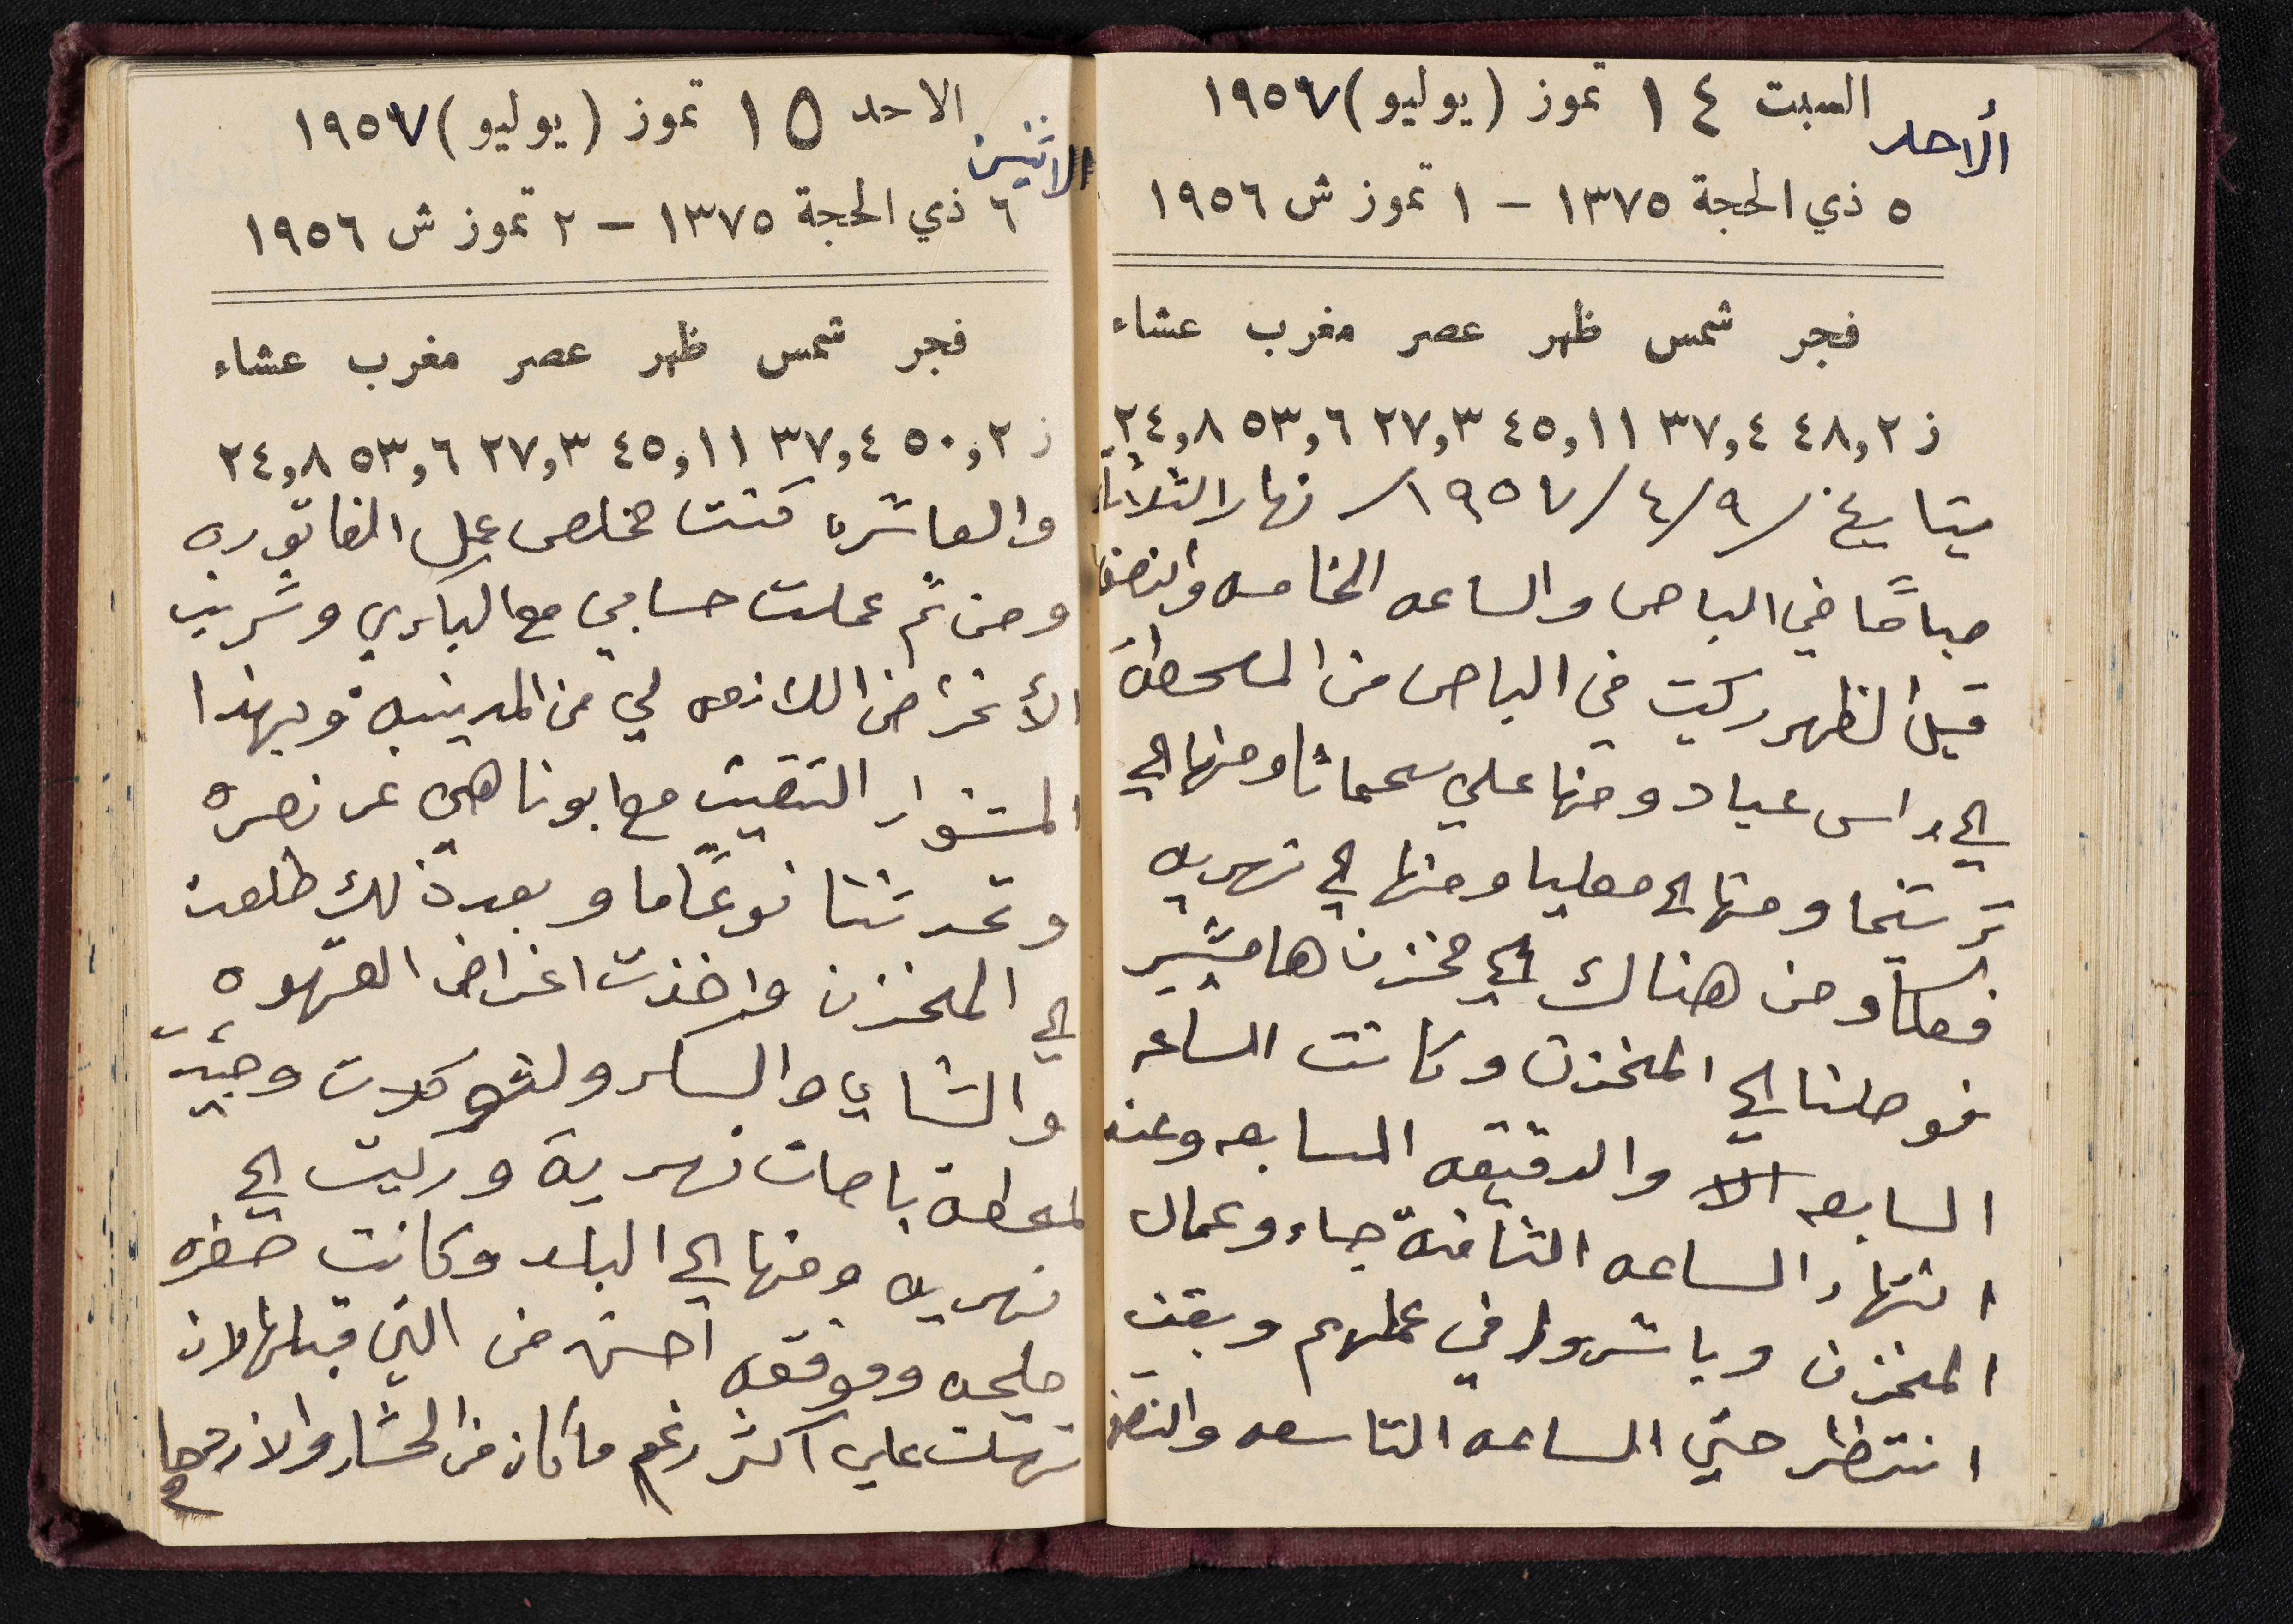 الأحد
السبت ١٤ تموز (يوليو) ١٩٥٧
٥ ذي الحجة ١٣٧٥ – ١ تموز ش ١٩٥٦
فجر شمس ظهر عصر مغرب عشاء
ز ٤٨,٢ ٣٧,٤ ٤٥,١١ ٢٧,٣ ٥٣,٦ ٢٤,٨
بتاريخ ٩/٤/١٩٥٧/ نهار الثلاثاء
صباحًا في الباص والساعه الخامسه والنصف
قبل الظهر ركبت في الباص من المحطة
الى راس عباد ومنها على سحماتا ومنها الى
ترشيحا ومنها الى معليا ومنها الى نهريه
فعكا ومن هناك الى مخزن هامشبير
فوصلنا الى المخزن وكانت الساعه
السابعه الا والدقيقه السابعه وعند
انتهاء الساعه الثامنة جاء وعمال
المخزن وباشروا في عملهم وبقيت
انتظر حتى الساعه التاسعه والنصف
الاثنين
الاحد ١٥ تموز (يوليو) ١٩٥٧
٦ ذي الحجة ١٣٧٥ – ٢ تموز ش ١٩٥٦
فجر شمس ظهر عصر مغرب عشاء
ز ٥٠,٢ ٣٧,٤ ٤٥,١١ ٢٧,٣ ٥٣,٦ ٢٤,٨
والعاشره كنت مخلص عمل الفاتوره
ومن ثم عملت حسابي مع البكري وشريت
الأغراض اللازمه لي من المدينه وبهذا
المشوار التقيت مع ابونا هي عر نصره
وتحدثنا نوعًاما وبعدذلك طلعت
الى المخزن واخذت اغراض القهوه
والشاي والسكر ولشوكلات وجيئت
لمحطة باصات نهرية وركبت الى
نهريه ومنها الى البلد وكانت صفره
مليحه وموفقه احسن من التي قبلها لان
تهلت علي اكثر رغم ماكان من الحشار والازدحام